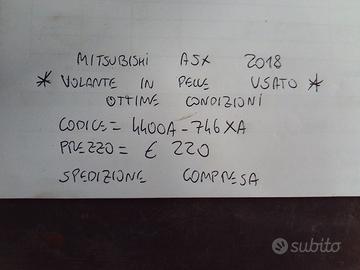 MITSUBISHI ASX 2018
* VOLANTE IN PELLE USATO *
OTTIME CONDIZIONI
CODICE = 4400A-746XA
PREZZO = € 220
SPEDIZIONE COMPRESA
subito